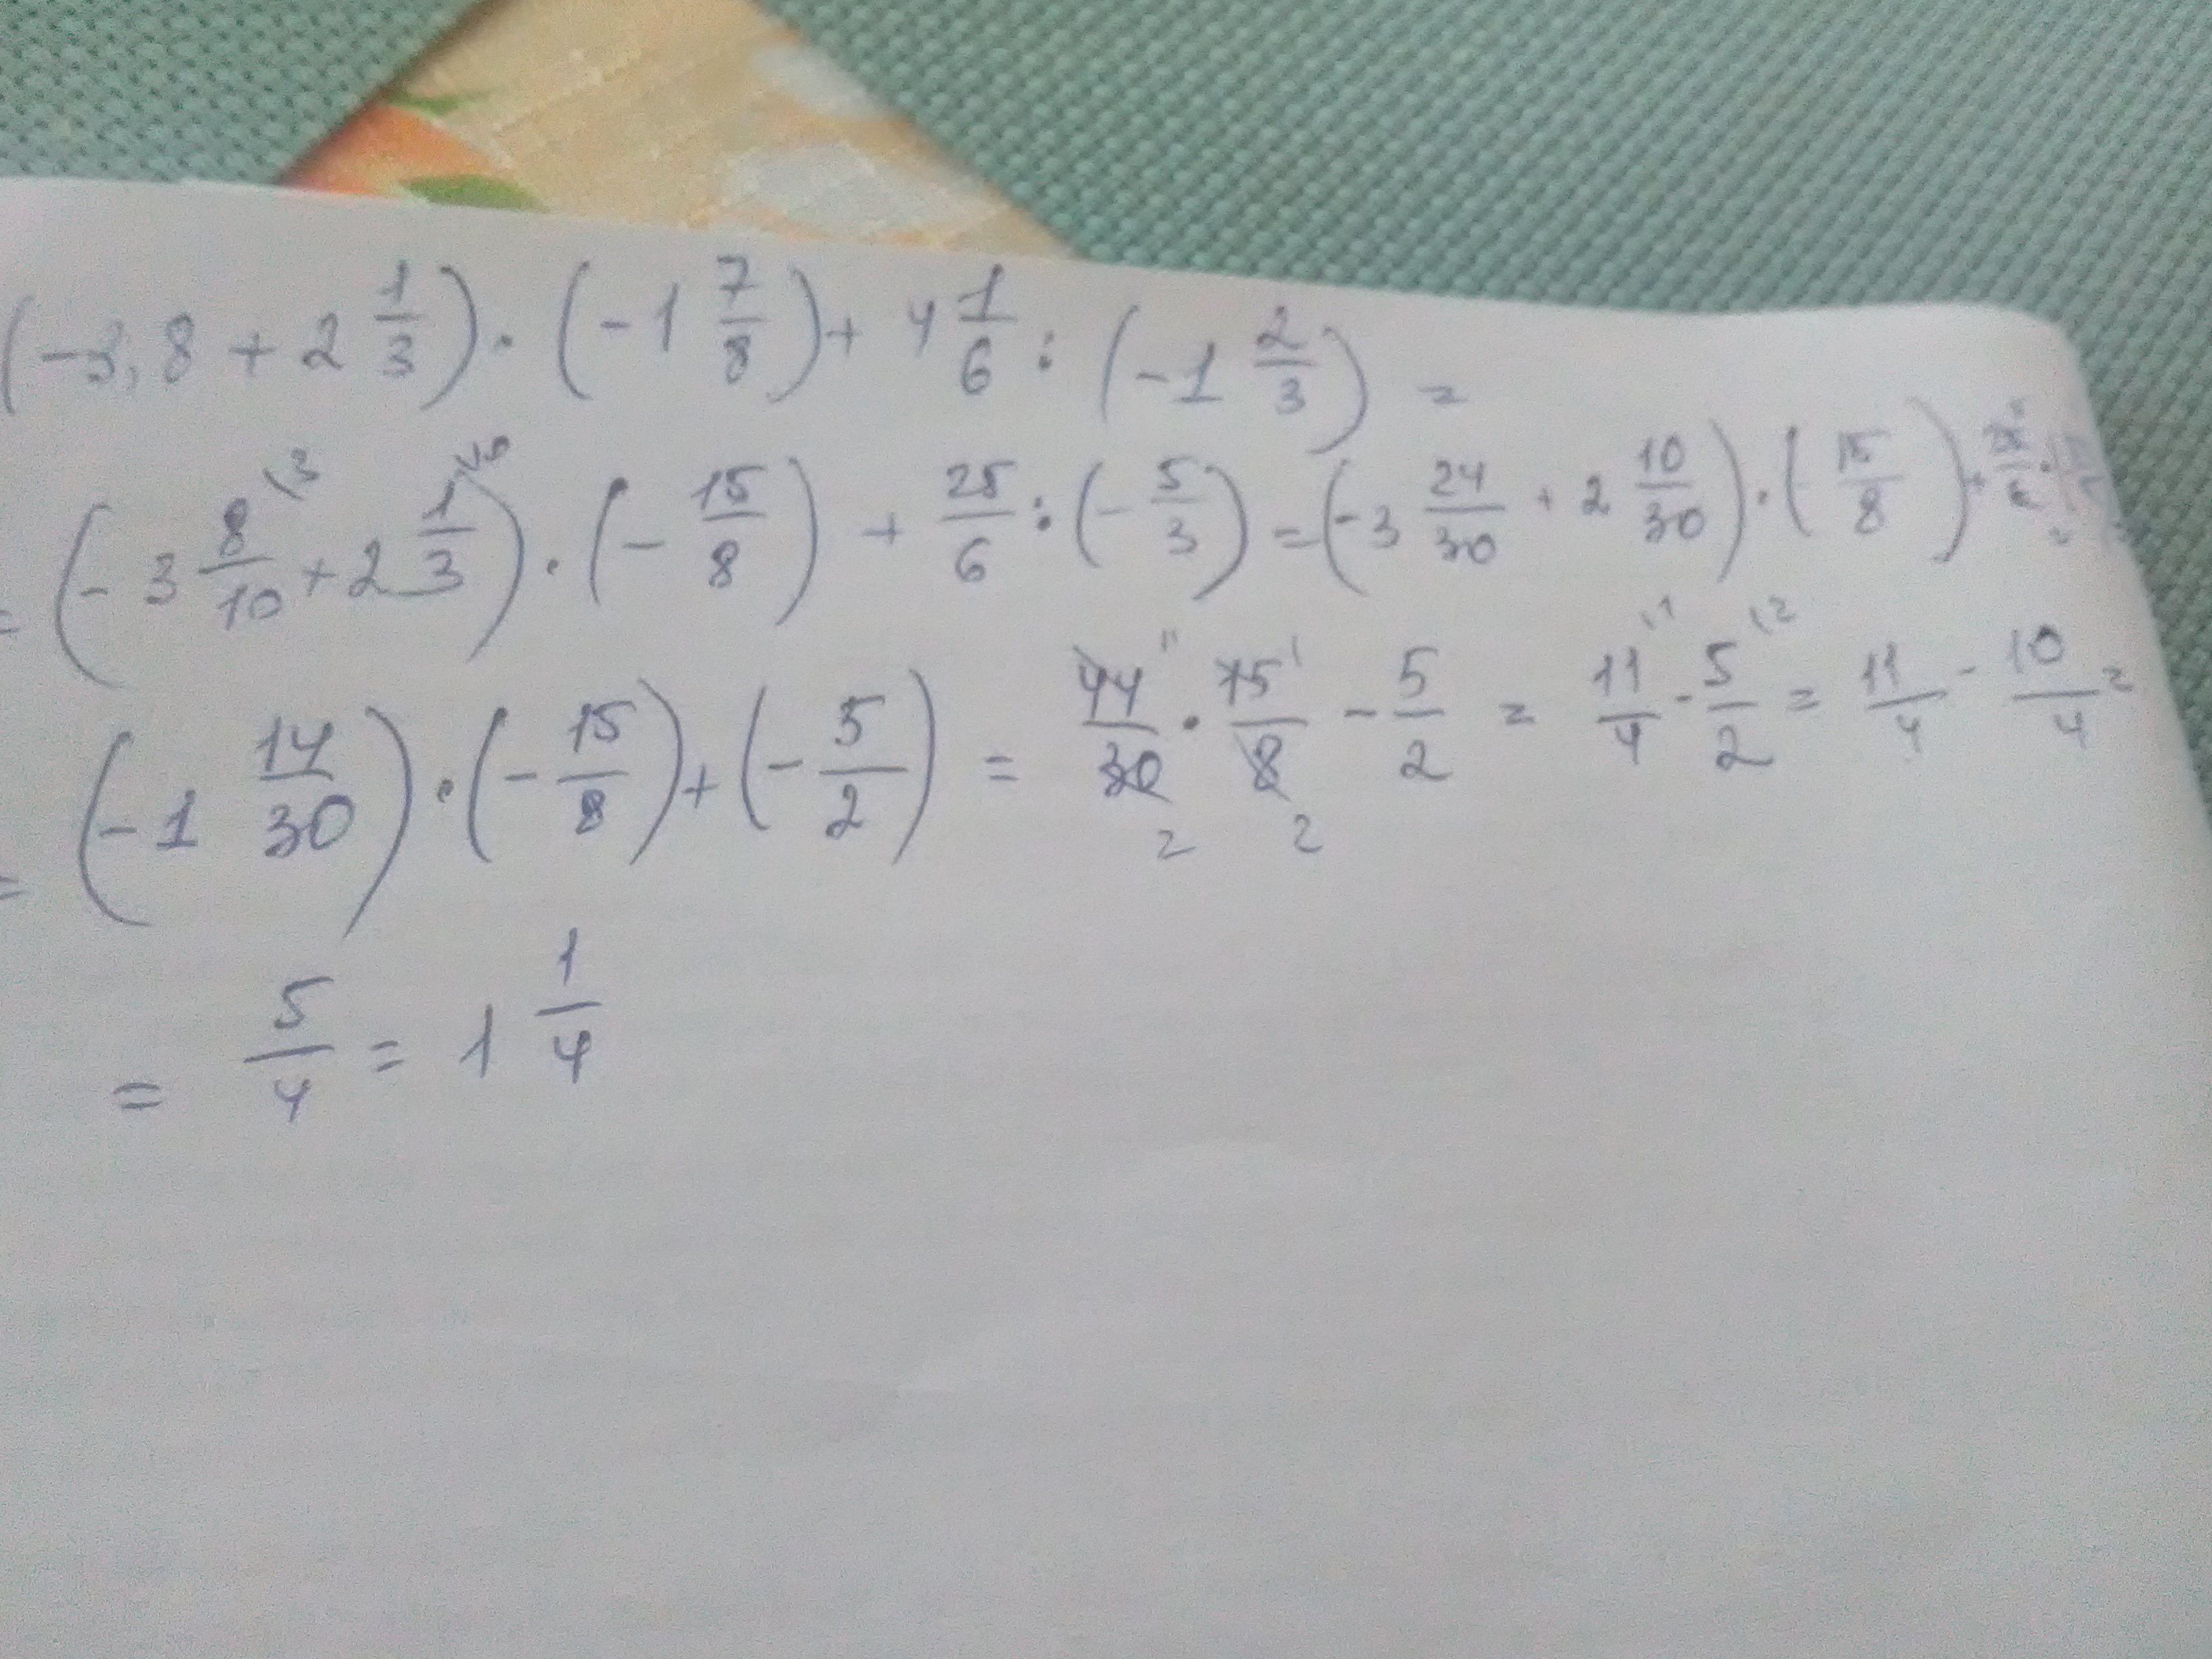 (-3,8 + 2 1/3) · (-1 7/8) + 4 1/6 : (-1 2/3) =
= (-3 8/10 \3 + 2 1/3 \10) · (- 15/8) + 25/6 : (- 5/3) = (-3 24/30 + 2 10/30) · ( 15/8 ) +
= (-1 14/30) · (- 15/8) + (- 5/2) = 44/30 11 2 · 15/8 1 2 - 5/2 = 11/4 \1 - 5/2 \2 = 11/4 - 10/4 =
= 5/4 = 1 1/4